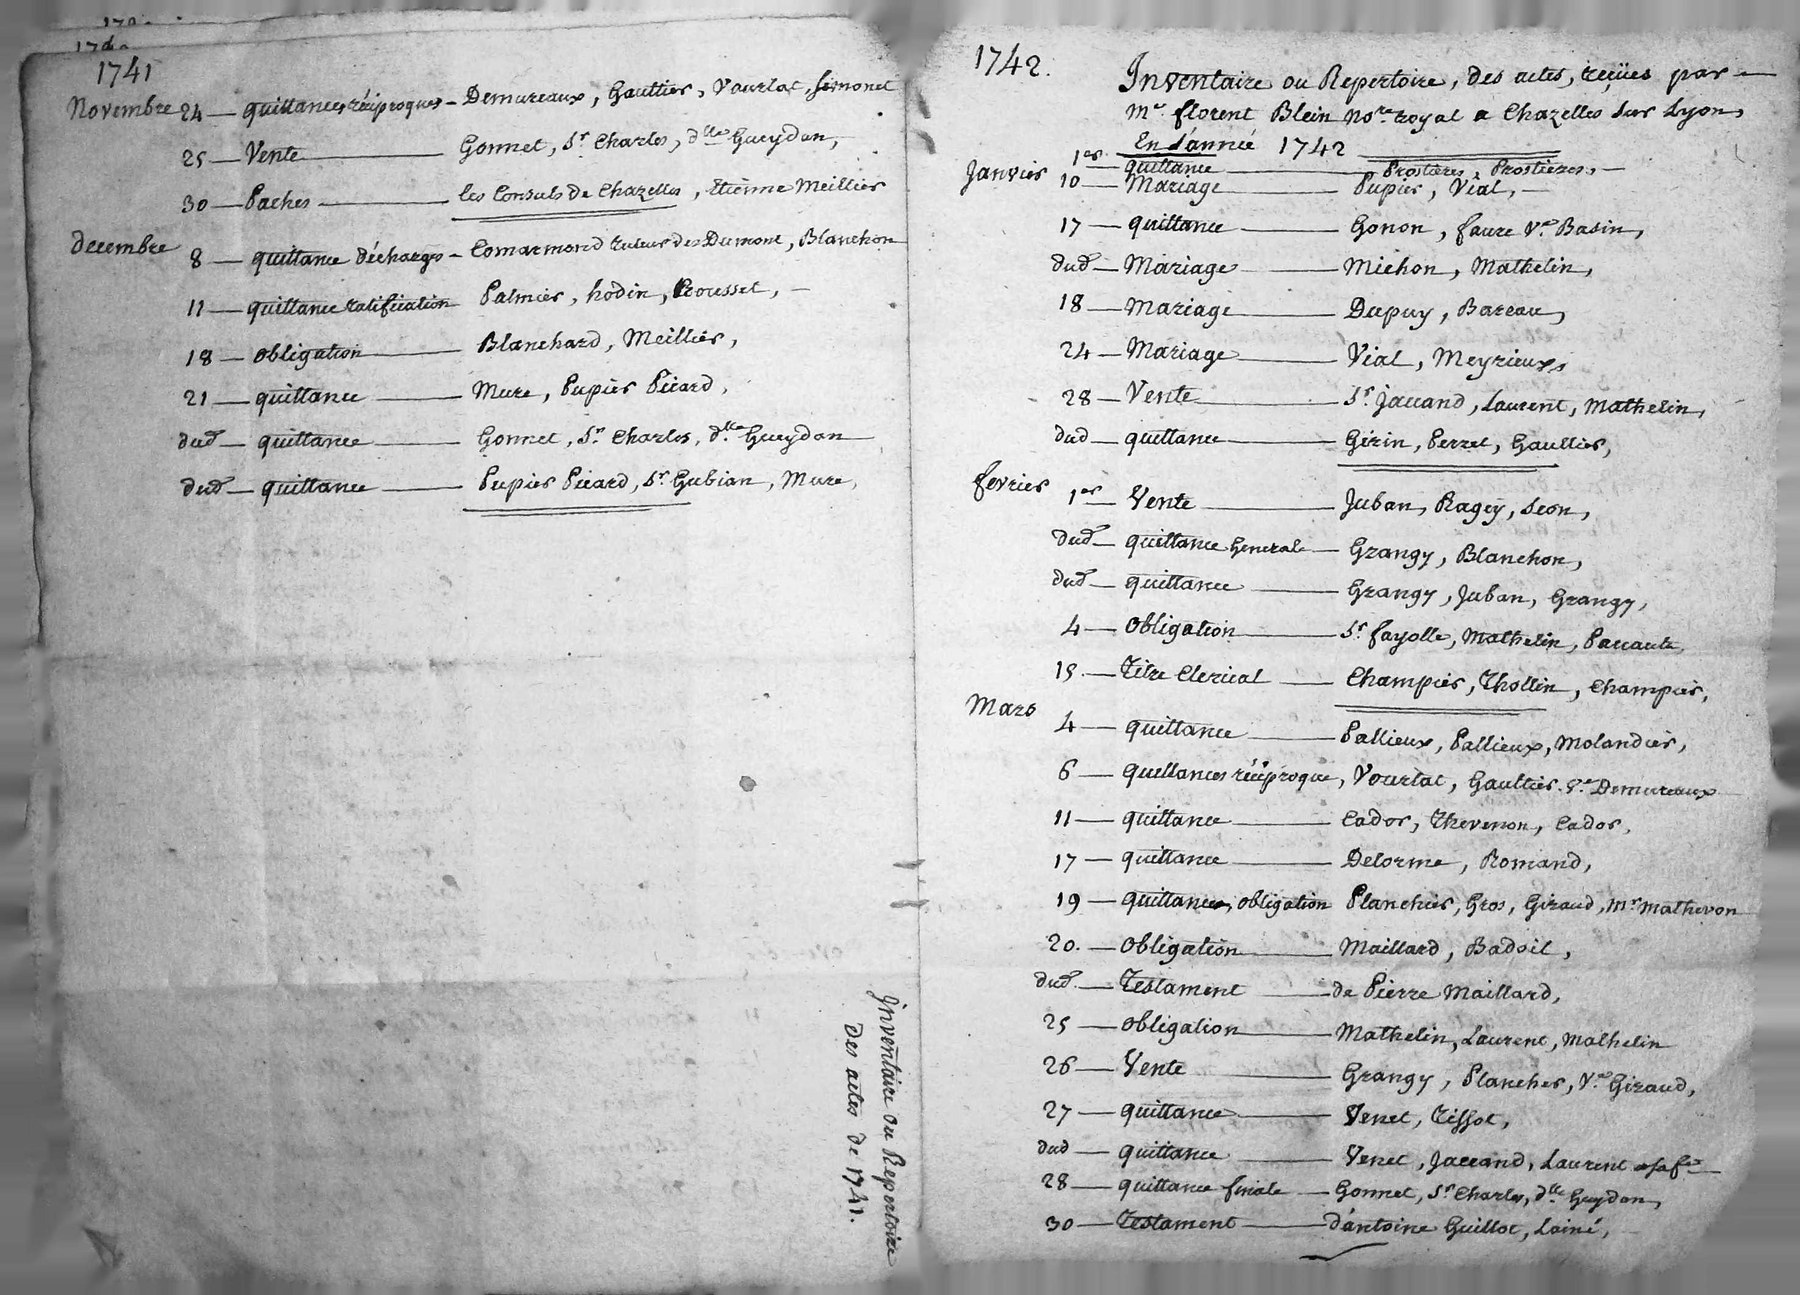 1741
Novembre 24 — quittances réciproques — Demureaux, Gaultier, Vourlat, Simonet
25 — Vente — Gonnet, Sr Charles, dlle Gueydan,
30 — Paches — les Consuls de Chazelles, Etienne Meillier
decembre 8 — quittance décharges — Comarmond tuteur des Dumont, Blanchon
11 — quittance ratification Palmier, hodin, Rousset, —
18 — obligation — Blanchard, Meillier,
21 — quittance — Mure, Pupier Picard,
dud — quittance — Gonnet, Sr Charles, dlle Gueydan
dud — quittance — Pupier Picard, Sr Gubian, Mure,
Inventaire ou Repertoire
Des actes de 1741.
1742.
Inventaire ou Repertoire, des actes, reçües par
Me florent Blein Nore royal a Chazelles sur Lyon,
En L'année 1742
Janvier 1er quittance — Prostieres, Prostieres, —
10 — Mariage — Pupier, Vial, —
17 — quittance — Gonon, faure Ve Basin,
dud — Mariage — Michon, Mathelin,
18 — Mariage — Dupuy, Bareau,
24 — Mariage — Vial, Meyrieux,
28 — Vente — Sr Jaccand, Laurent, Mathelin,
dud — quittance — Girin, Perret, Gaultier,
fevrier 1er — Vente — Juban, Ragey, Leon,
dud — quittance Generale — Grangy, Blanchon,
dud — quittance — Grangy, Juban, Grangy,
4 — obligation — Sr fayolle, Mathelin,
15 — Titre Clerical — Champier, Thollin, Champier,
Mars 4 — quittance — Pallieux, Pallieux, Molandier,
6 — quittances réciproque, Vourlat, Gaultier Ve Demureaux
11 — quittance — Cador, Thevenon, Cador,
17 — quittance — Delorme, Romand,
19 — quittance, obligation Planchier, Gros, Giraud, Mr Mathevon
20. — obligation — Maillard, Badoil,
dud — Testament — de Pierre Maillard,
25 — obligation — Mathelin, Laurent, Mathelin
26 — Vente — Grangy, Plancher, Ve Giraud,
27 — quittance — Venet, Tissot,
dud — quittance — Venet, Jaccand, Laurent
28 — quittance finale — Gonnet, Sr Charles, dlle Gueydan,
30 — Testament — d'antoine Guillot, Lainé,